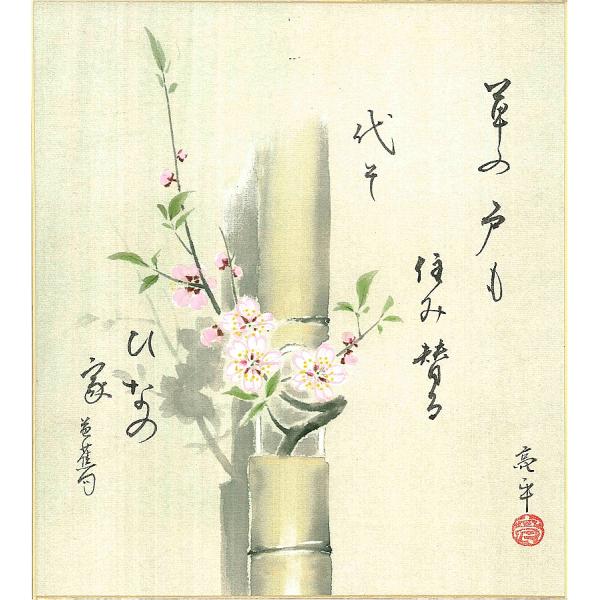 草の戸も
住み替る
代そ
ひなの
家
芭蕉句
亮平